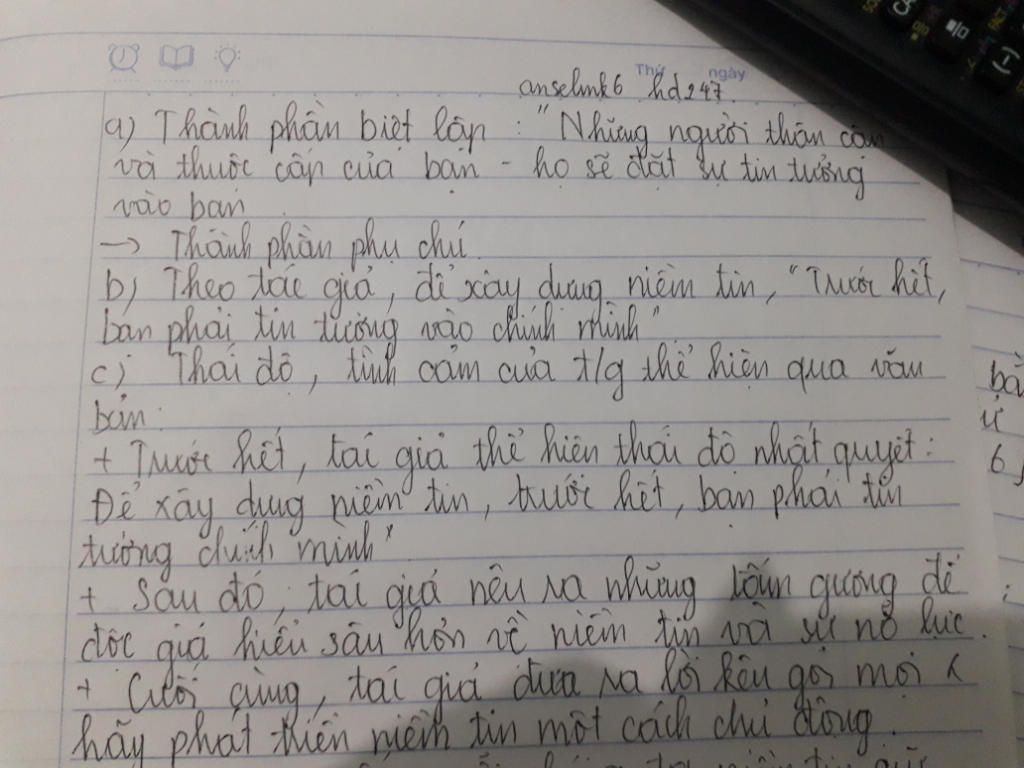 Thứ ngày
anselmk6 hd247.
a) Thành phần biệt lập : "Những người thân cận
và thuộc cấp của bạn - họ sẽ đặt sự tin tưởng
vào bạn
→ Thành phần phụ chú.
b) Theo tác giả, để xây dựng niềm tin, "Trước hết,
bạn phải tin tưởng vào chính mình"
c) Thái độ, tình cảm của t/g thể hiện qua văn
bản:
+ Trước hết, tác giả thể hiện thái độ nhất quyết:
Để xây dựng niềm tin, trước hết, bạn phải tin
tưởng chính mình"
+ Sau đó, tác giả nêu ra những tấm gương để
độc giả hiểu sâu hơn về niềm tin và sự nỗ lực.
+ Cuối cùng, tác giả đưa ra lời kêu gọi mọi
hãy phát triển niềm tin một cách chủ động.